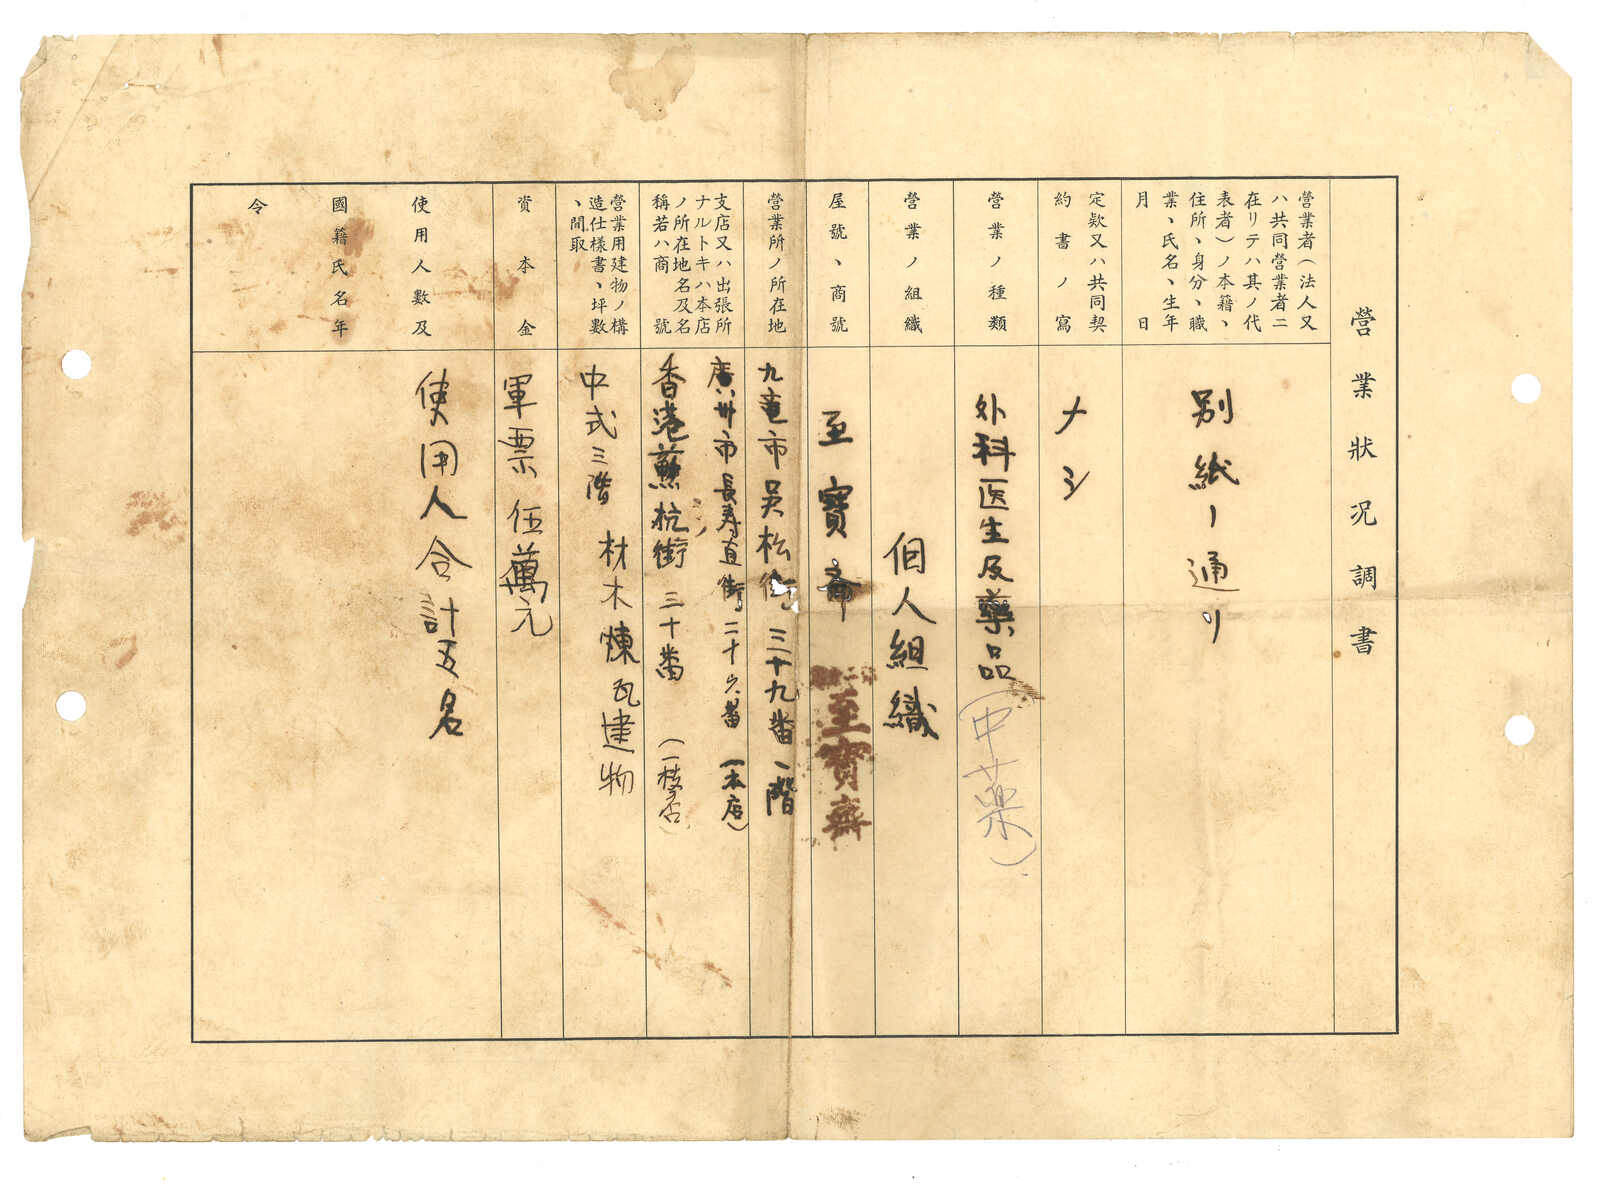 營業狀況調書
營業者(法人又
ハ共同營業者ニ
在リテハ其ノ代
表者)ノ本籍、
住所、身分、職
業、氏名、生年
月日
別紙ノ通リ
定欵又ハ共同契
約書ノ寫
ナシ
營業ノ種類
外科医生及藥品
(中藥)
營業ノ組織
個人組織
屋號、商號
至寶齋
至寶齋
營業所ノ所在地
九竜市吳松街三十九番一階
支店又ハ出張所
ナルトキハ本店
ノ所在地名及名
稱若ハ商號
廣州市長寿直街二十六番(本店)
香港蘇杭街三十番(一枝店)
營業用建物ノ構
造仕樣書、坪數
、間取
中式三階
材木煉瓦建物
資本金
軍票伍萬元
使用人數及
國籍氏名年
令
使用人合計五名